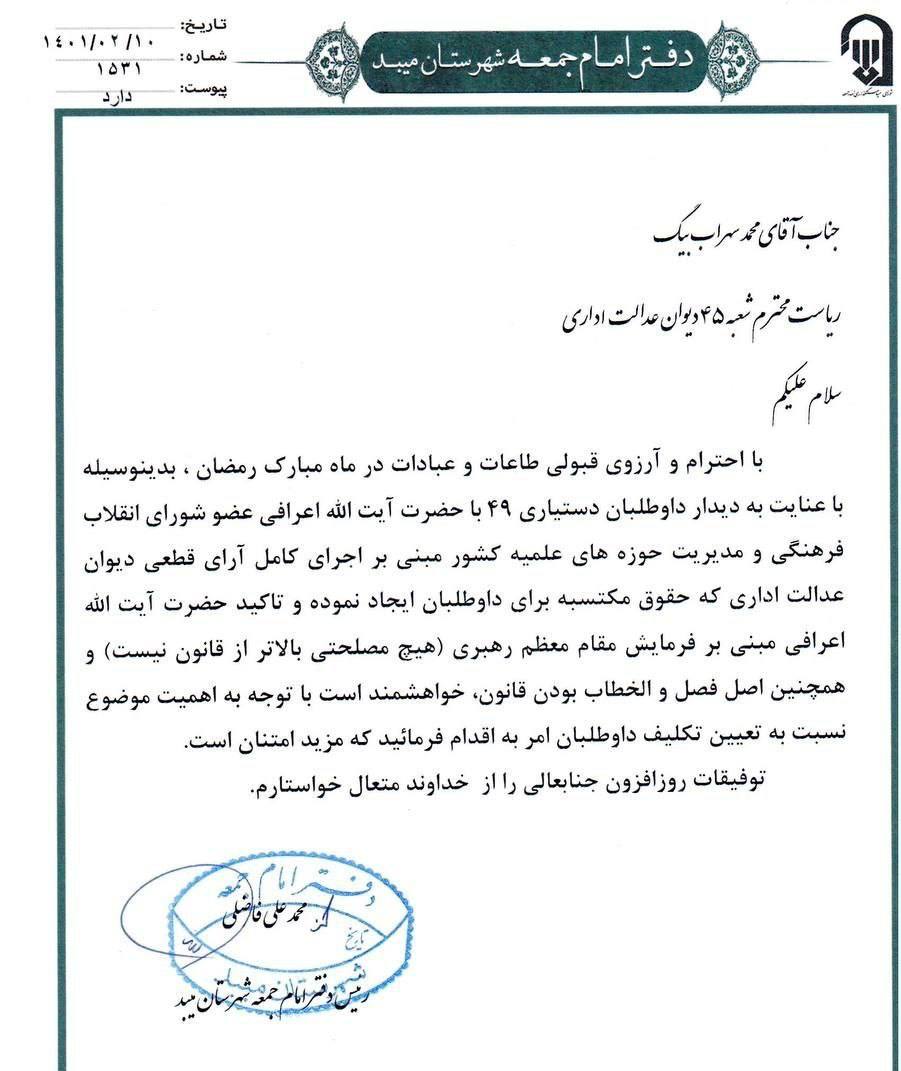 تاریخ: ۱۴۰۱/۰۲/۱۰
شماره: ۱۵۳۱
پیوست: دارد
دفتر امام جمعه شهرستان میبد
جناب آقای محمد سهراب بیگ
ریاست محترم شعبه ۴۵ دیوان عدالت اداری
سلام علیکم
با احترام و آرزوی قبولی طاعات و عبادات در ماه مبارک رمضان ، بدینوسیله
با عنایت به دیدار داوطلبان دستیاری ۴۹ با حضرت آیت الله اعرافی عضو شورای انقلاب
فرهنگی و مدیریت حوزه های علمیه کشور مبنی بر اجرای کامل آرای قطعی دیوان
عدالت اداری که حقوق مکتسبه برای داوطلبان ایجاد نموده و تاکید حضرت آیت الله
اعرافی مبنی بر فرمایش مقام معظم رهبری (هیچ مصلحتی بالاتر از قانون نیست) و
همچنین اصل فصل و الخطاب بودن قانون، خواهشمند است با توجه به اهمیت موضوع
نسبت به تعیین تکلیف داوطلبان امر به اقدام فرمائید که مزید امتنان است.
توفیقات روزافزون جنابعالی را از خداوند متعال خواستارم.
دفتر امام جمعه
محمد علی فاضلی
تاریخ
شهرستان میبد
رئیس دفتر امام جمعه شهرستان میبد